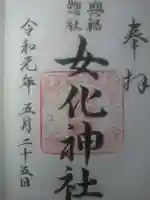 奉拝
女化神社
令和元年五月二十五日